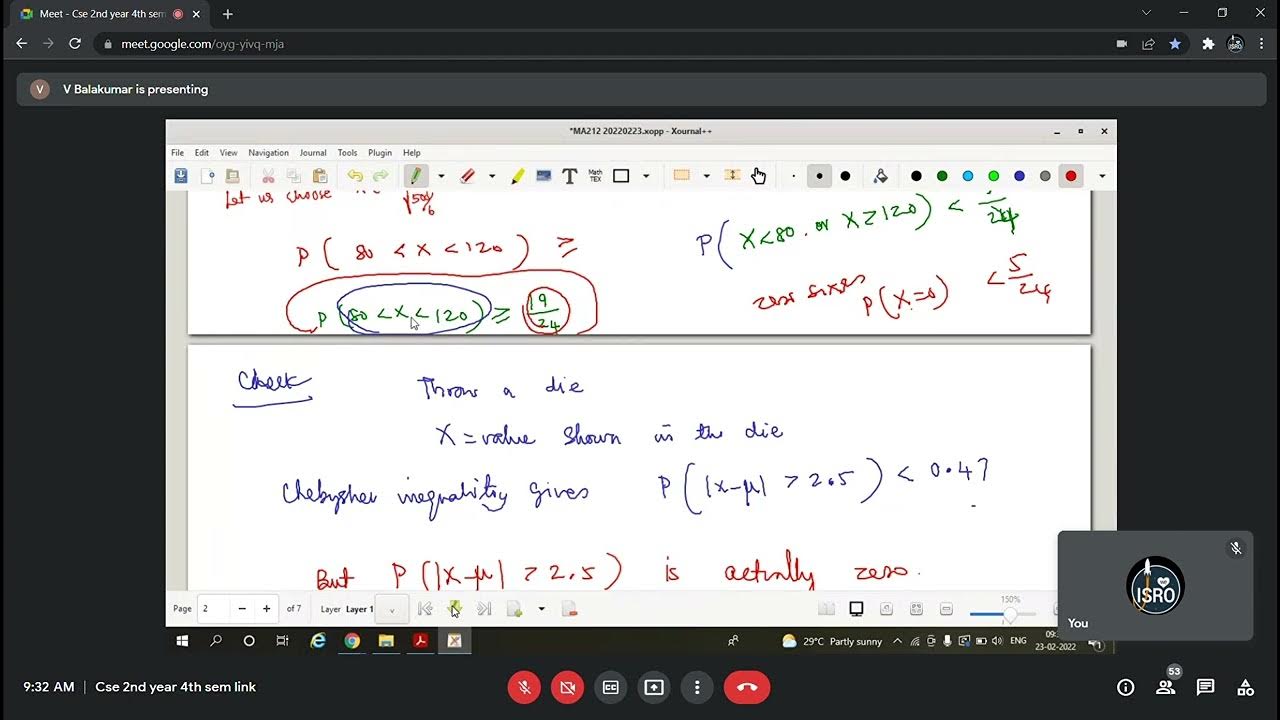 Meet - Cse 2nd year 4th sem
meet.google.com/oyg-yivq-mja
V Balakumar is presenting
*MA212 20220223.xopp - Xournal++
File Edit View Navigation Journal Tools Plugin Help
Math TEX
Let us choose
√50%
P( 80 < X < 120 ) ≥
P( X<80 . or X≥120 ) <
24
P( 80 < X < 120 ) ≥ 19/24
zero sixes P(X=0) < 5/24
Check
Throw a die
X = value shown in the die
Chebyshev inequality gives P( |X-μ| > 2.5 ) < 0.47
But P( |X-μ| > 2.5 ) is actually zero.
Page 2 of 7 Layer Layer 1
150%
ISRO
You
29°C Partly sunny ENG
23-02-2022
9:32 AM | Cse 2nd year 4th sem link
53